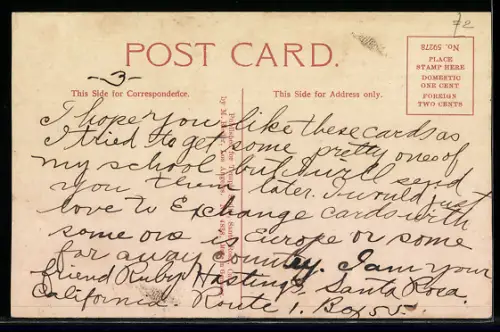 72
POST CARD.
No. 59278
PLACE
STAMP HERE
DOMESTIC
ONE CENT
FOREIGN
TWO CENTS
-3-
This Side for Correspondence.
This Side for Address only.
I hope you like these cards as
I tried to get some pretty ones of
my school but I will send
you them later. I would just
love to Exchange cards with
some one is Europe or some
far away Country. I am your
friend Ruby Hastings, Santa Rosa,
California Route 1, Box 55.